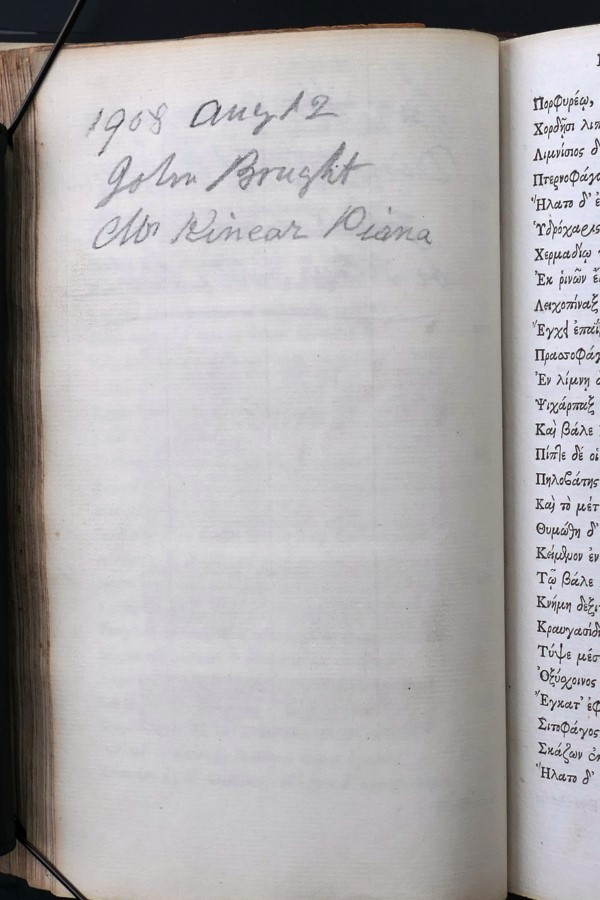 1908 Aug 12
John Bought
Mr Kinear Piana
Πορφυρέῳ,
Χορδῇσι λιπ
Λιμνίσιος δ
Πτερνοφάγο
Ἥλατο δ' ἐ
Ὑδρόχαρις
Χερμαδίῳ
Ἐκ ῥινῶν ἔ
Λειχοπίναξ
Ἔγχει ἐπαΐ
Πρασσοφάγ
Ἐν λίμνῃ
Ψιχάρπαξ
Καὶ βάλε
Πίπτε δέ οἱ
Πηλοβάτης
Καὶ τὸ μέτ
Θυμώθη δ'
Κείμενον ἐν
Τῷ βάλε
Κνήμη δεξι
Κραυγασίδη
Τύψε μέσ
Ὀξύχοινος
Ἔγκατ' ἐφ
Σιτοφάγος
Σκάζων ἐκ
Ἥλατο δ'